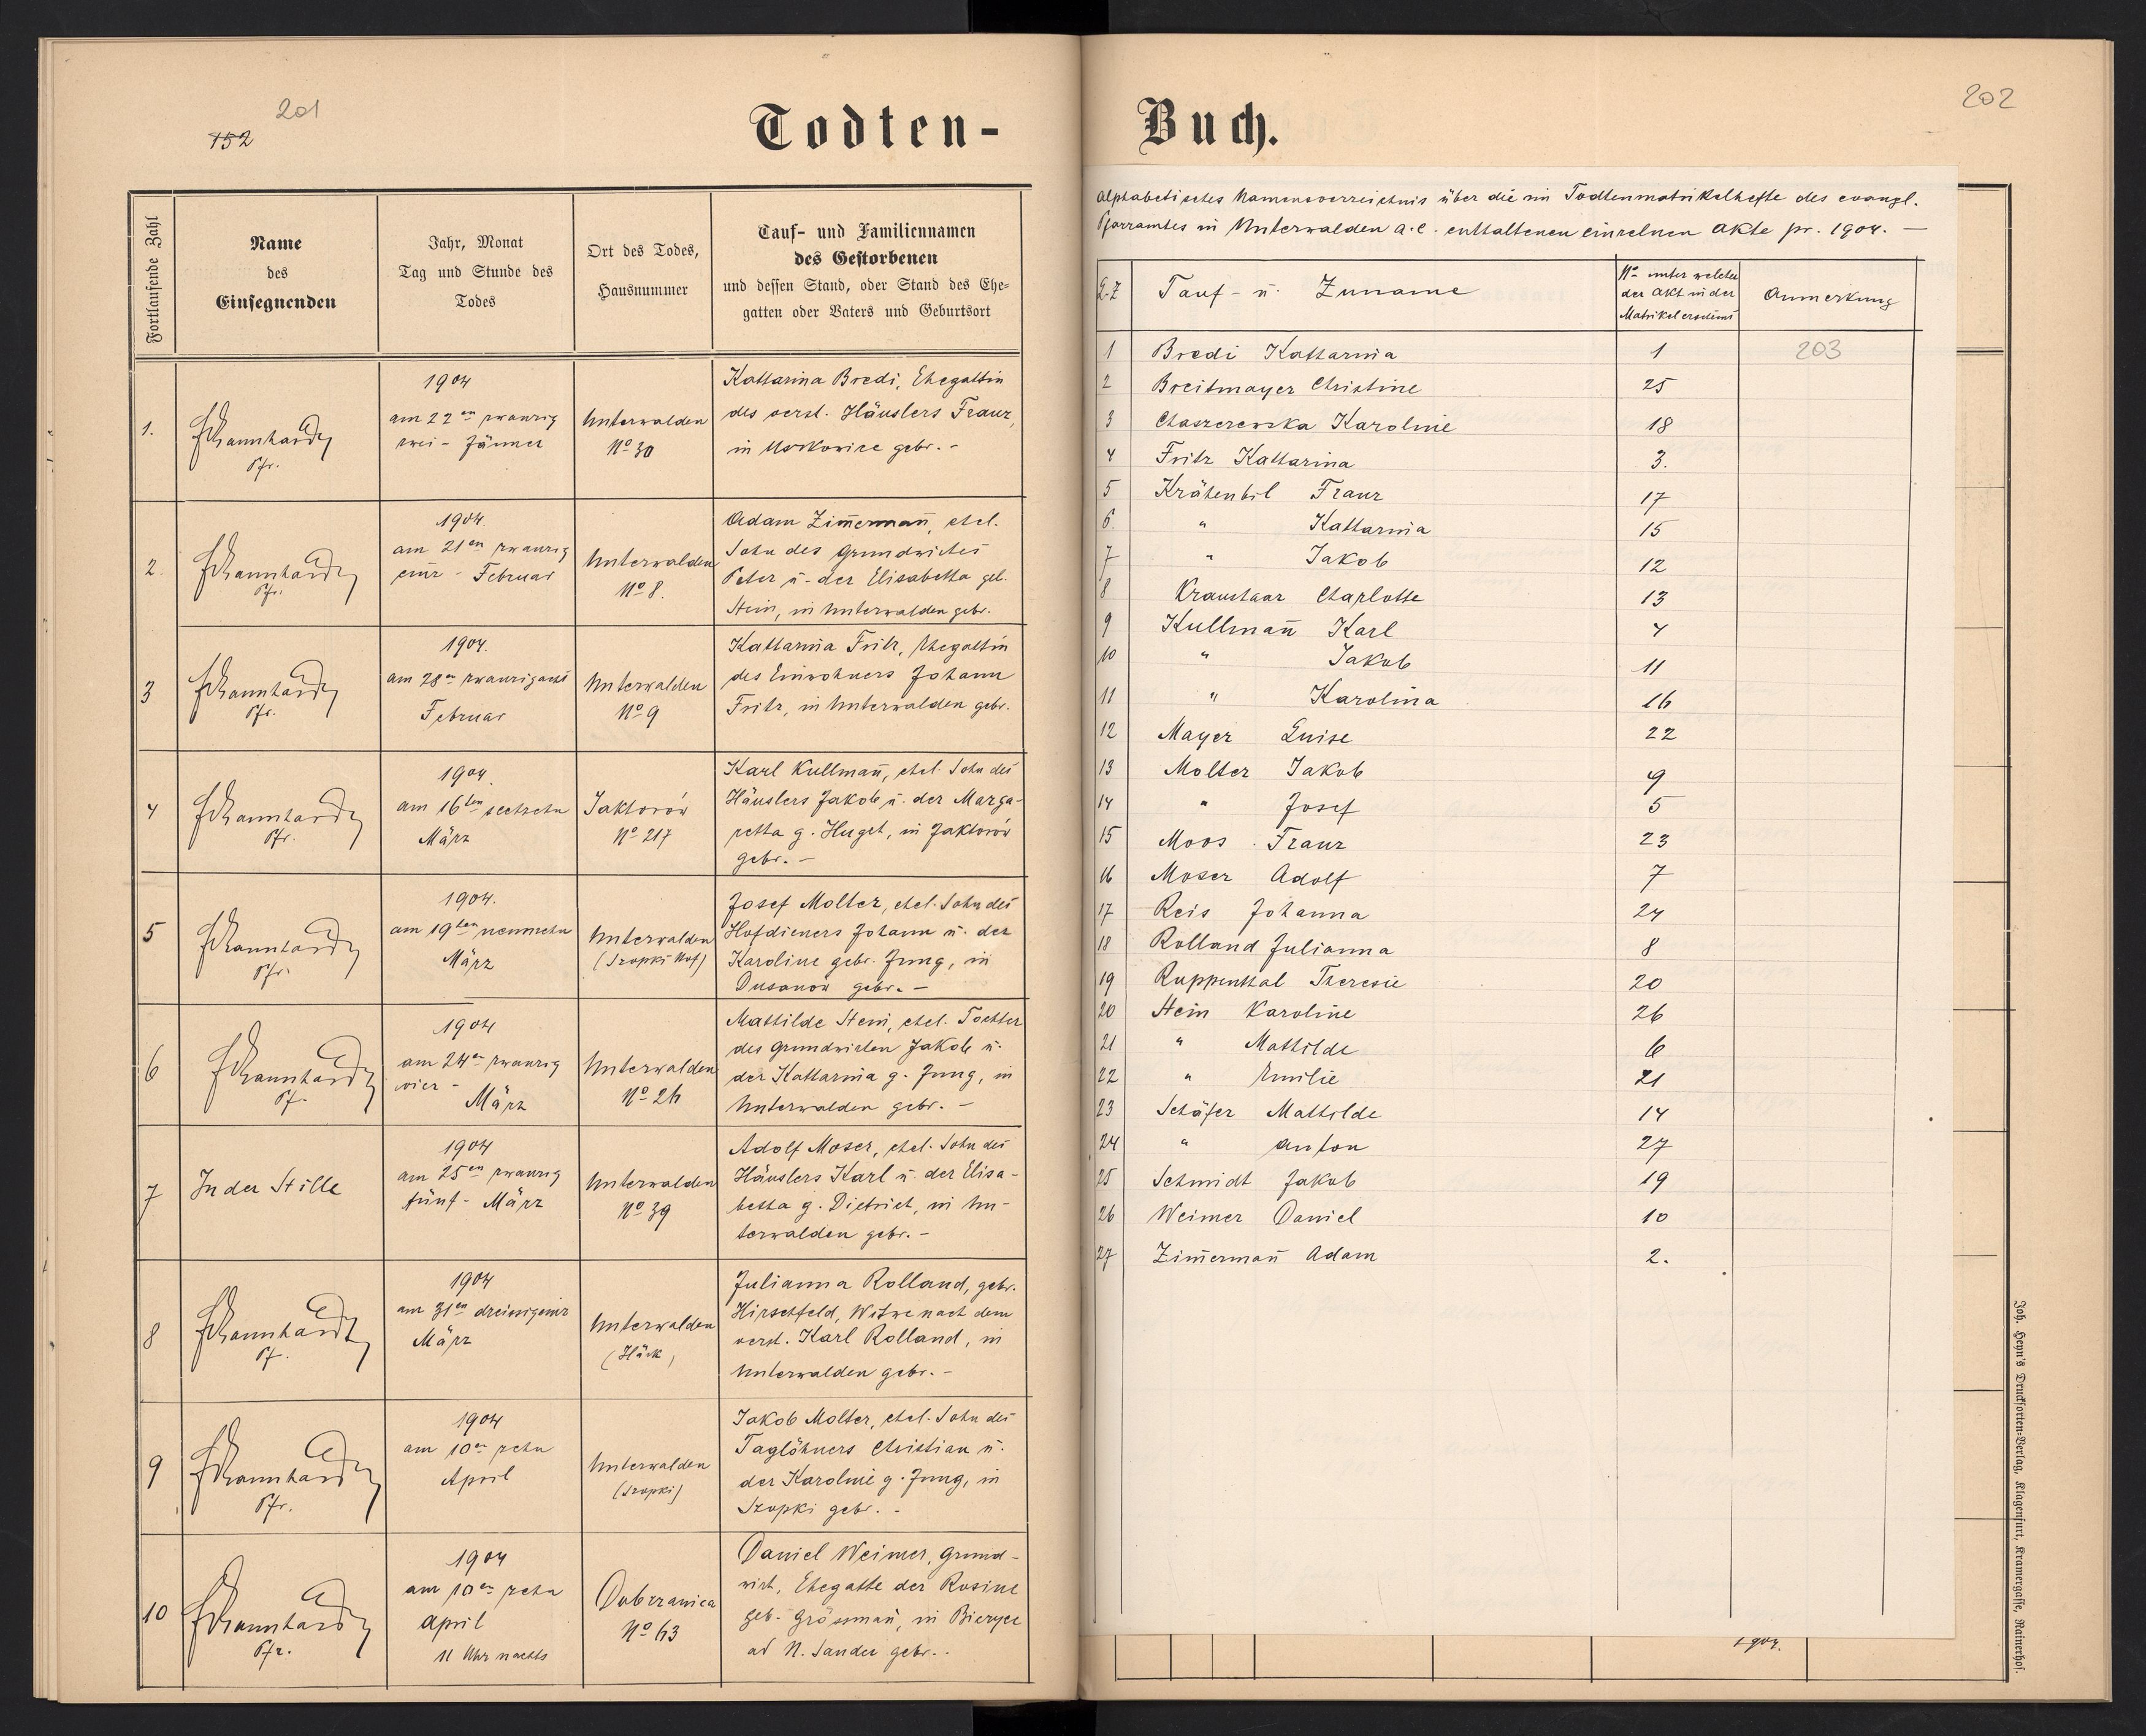 201
152
Todten-
Fortlaufende Zahl
Name
des
Einsegnenden
Jahr, Monat
Tag und Stunde des
Todes
Ort des Todes,
Hausnummer
Tauf- und Familiennamen
des Gestorbenen
und dessen Stand, oder Stand des Ehe-
gatten oder Vaters und Geburtsort
1.
Pfr.
1904
am 22en zwanzig
zwei - Jänner
Unterwalden
No 30
Katharina Bredi, Ehegattin
des verst. Häuslers Franz,
in gebr. -
2.
Pfr.
1904.
am 21en zwanzig
einz - Februar
Unterwalden
No 8.
Adam Zim̄erman̄, ehel.
Sohn des Grundwirtes
Peter u. der Elisabetha geb.
Stein, in Unterwalden gebr.
3
Pfr.
1904.
am 28en zwanzigacht
Februar
Unterwalden
No 9
Katharina Fritz, Ehegattin
des Einwohners Johann
Fritz, in Unterwalden gebr.
4
Pfr.
1904.
am 16ten sechzehn
März
Jaktorów
No 217
Karl Kullman̄, ehel. Sohn des
Häuslers Jakob u. der Marga-
retha g. Huget, in Jaktorów
gebr. -
5
Pfr.
1904.
am 19ten neunzehn
März
Unterwalden
(Szopki Hof)
Josef Molter, ehel. Sohn des
Hofdieners Johann u. der
Karoline gebr. Jung, in
Dusanów gebr. -
6
Pf.
1904
am 24en zwanzig
vier -
März
Unterwalden
No 26
Mathilde Stein, ehel. Tochter
des Grundwirten Jakob u.
der Katharina g. Jung, in
Unterwalden gebr. -
7
In der Stille
1904
am 25en zwanzig
fünf - März
Unterwalden
No 39
Adolf Moser, ehel. Sohn des
Häuslers Karl u. der Elisa-
betha g. Dietrich, in Un-
terwalden gebr. -
8
Pf.
1904
am 31en dreissigeinz
März
Unterwalden
Julianna Rolland, gebr.
Hirschfeld, Witwe nach dem
verst. Karl Rolland, in
Unterwalden gebr. -
9
Pfr.
1904
am 10en zehn
April
Unterwalden
(Szopki)
Jakob Molter, ehel. Sohn des
Taglöhners Christian u.
der Karoline g. Jung, in
Szopki gebr. -
10
Pfr.
1904
am 10en zehn
April
11 Uhr nachts
Dobrzanica
No 63
Daniel Weimer, Grund-
wirt, Ehegatte der Rosine
geb. Grössman̄, in
ad N. Sandez gebr. -
Buch.
202
Alphabetisches Namensverzeichnis über die im Todtenmatrikelhefte des evangl.
Pfarramtes in Unterwalden a.c. enthaltenen einzelnen Akte pr. 1904. -
L.Z
Tauf- u. Zuname
No unter welcher
der Akt in der
Matrikel erscheint
Anmerkung
1 Bredi Katharina 1 203
2 Breitmayer Christine 25
3 Chaszczewska Karoline 18
4 Fritz Katharina 3.
5 Krähenbil Franz 17
6. " Katharina 15
7 " Jakob 12
8 Kraushaar Charlotte 13
9 Kullman̄ Karl 4
10 " Jakob 11
11 " Karolina 16
12 Mayer Luise 22
13 Molter Jakob 9
14 " Josef 5
15 Moos Franz 23
16 Moser Adolf 7
17 Reis Johanna 24
18 Rolland Julianna 8
19 Ruppenthal Theresie 20
20 Stein Karoline 26
21 " Mathilde 6
22 " Emilie 21
23 Schäfer Mathilde 14
24 " Anton 27
25 Schmidt Jakob 19
26 Weimer Daniel 10
27 Zim̄erman̄ Adam 2.
1904.
Joh. Heyn's Drucksorten-Verlag, Klagenfurt, Kramergasse, Rainerhof.